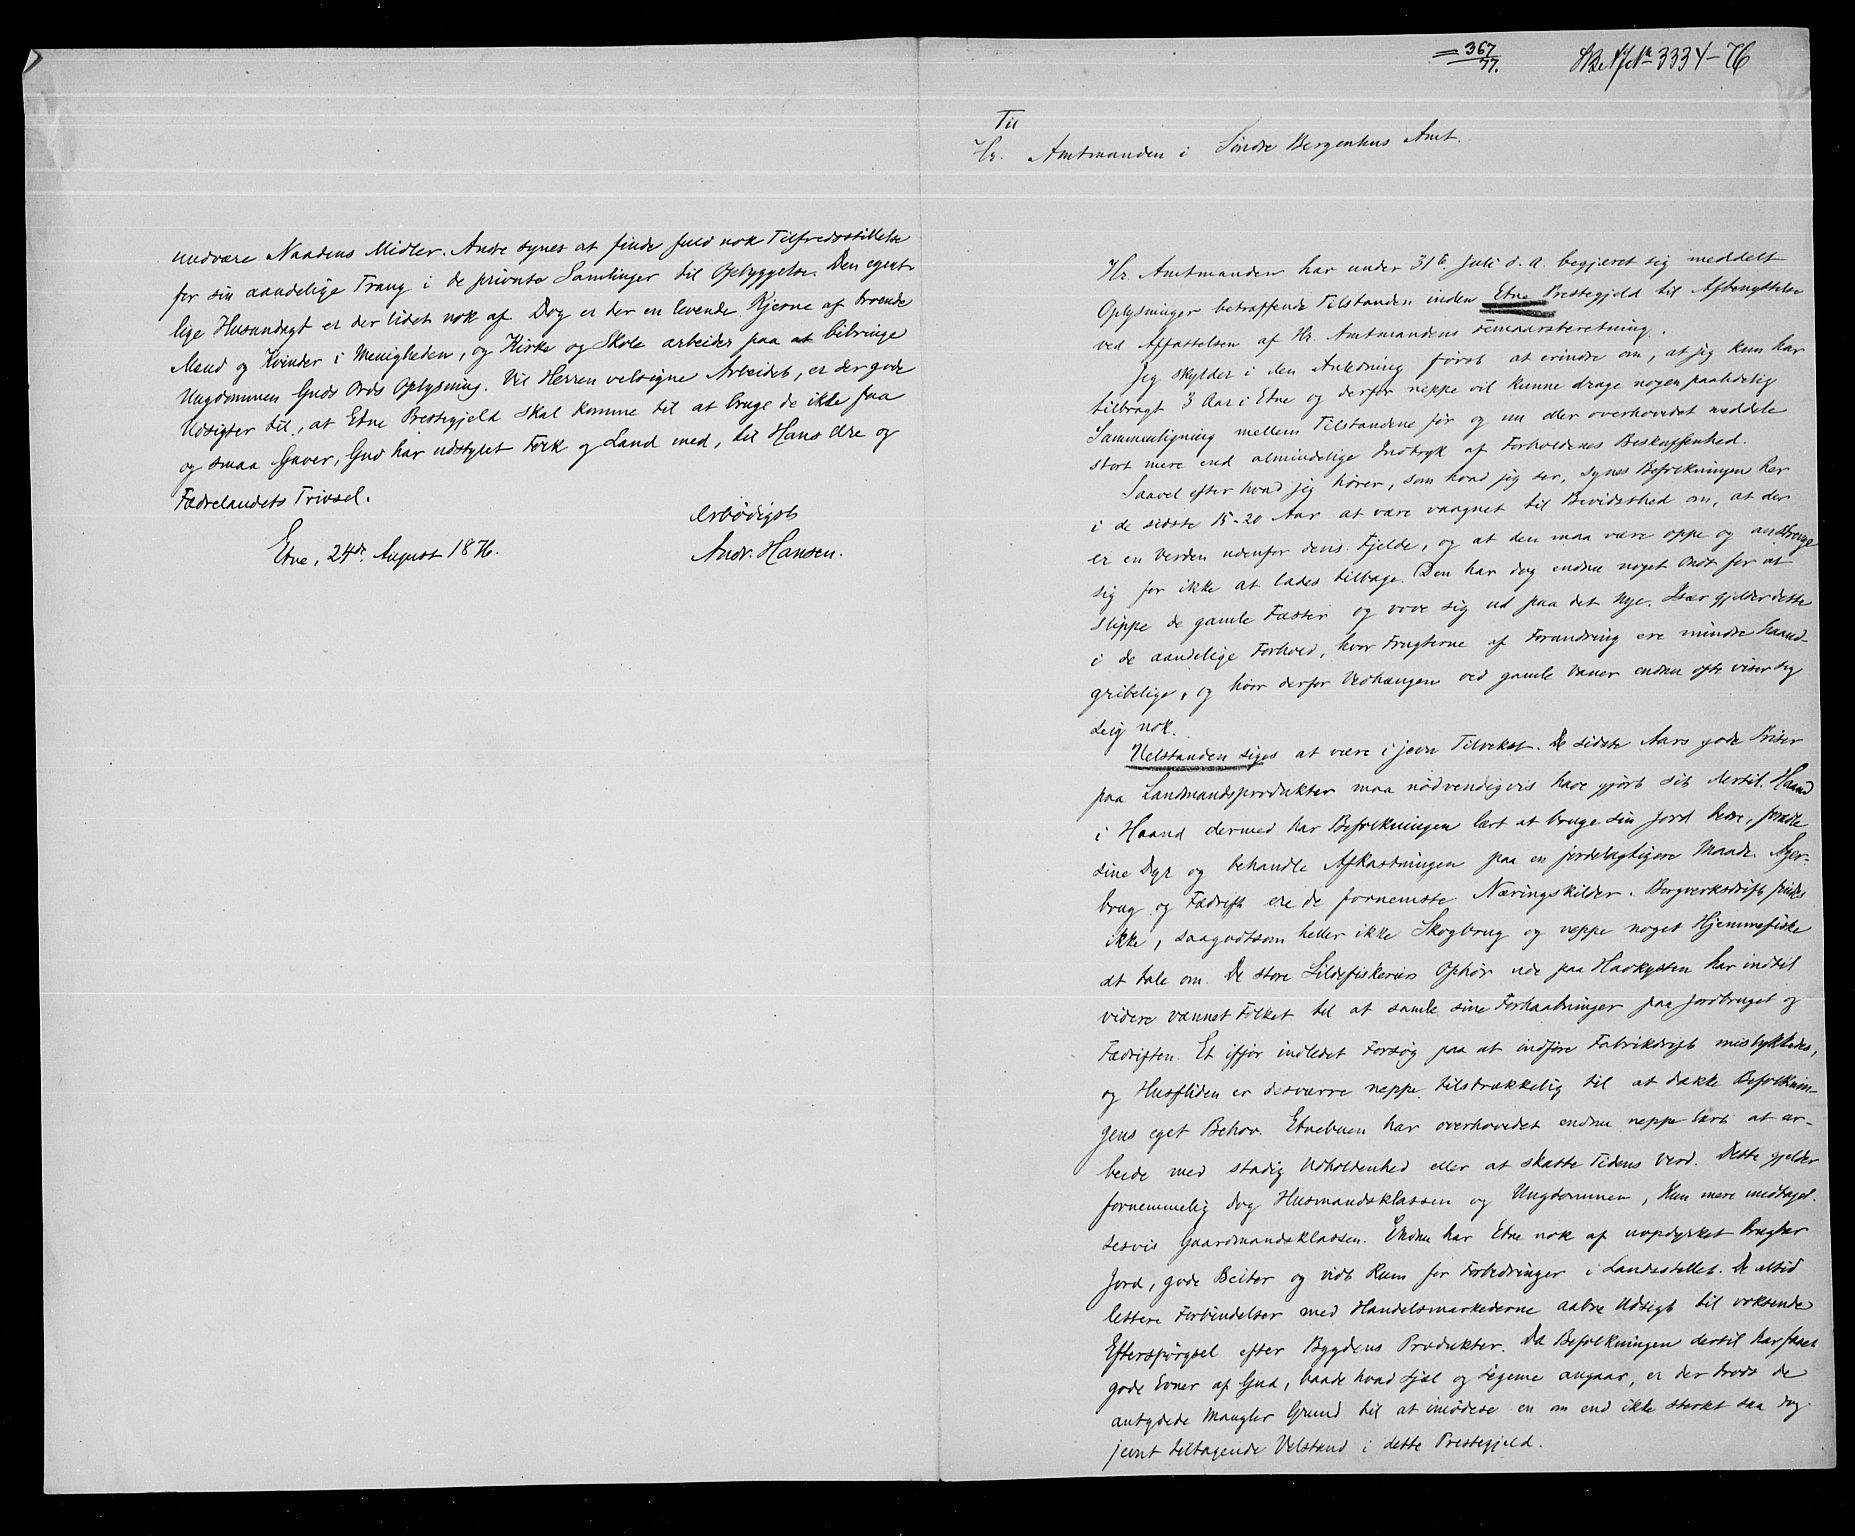 undvære Naadens Midler. Andre synes at finde fuld nok Tilfredsstillelse
for sin aandelige Trang i de private Samlinger til Opbyggelse. Den egent-
lige Husandagt er der lidet nok af. Dog er der en levende Kjerne af troende
Mænd og Kvinder i Menigheden, og Kirke og Skole arbeider paa at bibringe
Ungdommen Guds Ords Oplysning. Vil Herren velsigne Arbeidet, er der gode
Udsigter til, at Etne Prestegjeld skal komme til at bruge de ikke faa
og smaa Gaver, Gud har udstyret Folk og Land med, til Hans Ære og
Fædrelandets Trivsel.
Etne, 24de August 1876.
Ærbødigst
Andr. Hansen.
= 367/77.
3334-76
Til
Hr. Amtmanden i Søndre Bergenhus Amt.
Hr. Amtmanden har under 31te Juli d. A. begjæret sig meddelt
Oplysninger betræffende Tilstanden inden Etne Prestegjeld til Afbenyttelse
ved Affattelsen af Hr. Amtmandens Femaarsberetning.
Jeg skylder i den Anledning først at erindre om, at jeg kun har
tilbragt 3 Aar i Etne og derfor neppe vil kunne drage nogen paalidelig
Sammenligning mellem Tilstandene før og nu eller overhovedet meddele
stort mere end almindelige Indtryk af Forholdenes Beskaffenhed.
Saavel efter hvad jeg hører, som hvad jeg ser, synes Befolkningen her
i de sidste 15-20 Aar at være vaagnet til Bevidsthed om, at der
er en Verden udenfor dens Fjelde, og at den maa være oppe og anstrenge
sig for ikke at lades tilbage. Den har dog endnu noget ondt for at
slippe de gamle Fæster og vove sig ud paa det nye. Især gjelder dette
i de aandelige Forhold, hvor Frugterne af Forandring ere mindre haand-
gribelige, og hvor derfor Vedhængen ved gamle Vaner endnu ofte viser sig
seig nok.
Velstanden siges at være i jevn Tilvekst. De sidste Aars gode Priser
paa Landmandsprodukter maa nødvendigvis have gjort sit dertil. Haand
i Haand dermed har Befolkningen lært at bruge sin Jord bedre, fremdle
sine Dyr og behandle Afkastningen paa en fordelagtigere Maade. Ager-
brug og Fædrift ere de fornemste Næringskilder. Bergverksdrift findes
ikke, saagodtsom heller ikke Skogbrug og neppe noget Hjemmefiske
at tale om. De store Sildefiskeriers Ophør ude paa Havkysten har indtil
videre vænnet Folket til at samle sine Forhaabninger paa Jordbruget og
Fædriften. Et ifjor indledet Forsøg paa at indføre Fabrikdrift mislykkedes,
og Husfliden er desværre neppe tilstrækkelig til at dække Befolknin-
gens eget Behov. Etnebuen har overhovedet endnu neppe lært at ar-
beide med stadig Udholdenhed eller at skatte Tidens Verd. Dette gjelder
fornemmelig dog Husmandsklassen og Ungdommen, kun mere undtagel-
sesvis Gaardmandsklassen. Endnu har Etne nok af uopdyrket brugbar
Jord, gode Beiter og vidt Rum for Forbedringer i Landsstellet. De altid
lettere Forbindelser med Handelsmarkederne aabne Udsigt til voksende
Efterspørgsel efter Bygdens Produkter. Da Befolkningen dertil har faaet
gode Evner af Gud, baade hvad Sjæl og Legeme angaar, er der trods de
antydede Mangler Grund til at imødese en om end ikke sterkt saa dog
jevnt tiltagende Velstand i dette Prestegjeld.